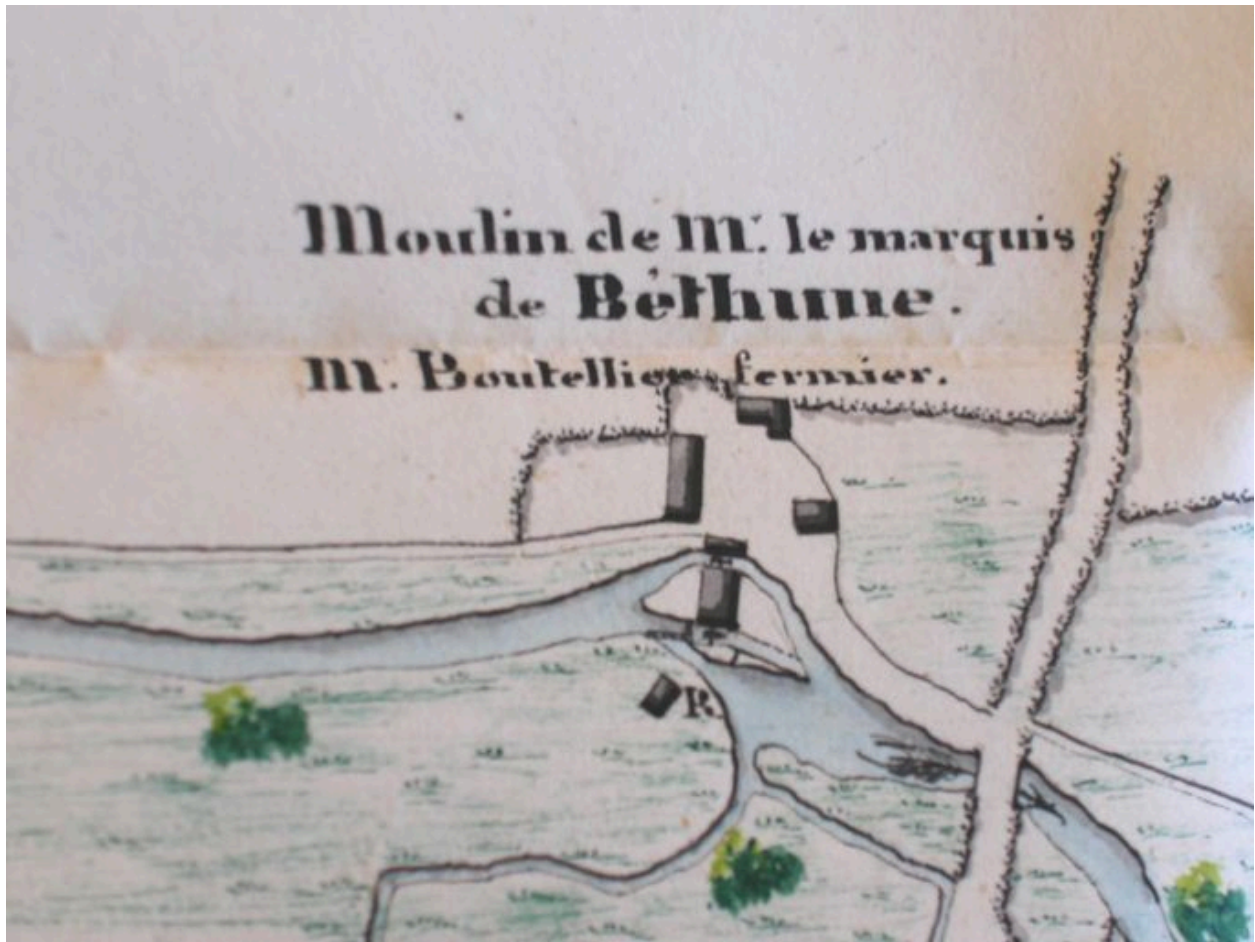 Moulin de Mr. le marquis
de Béthune.
Mr. Boutellier, fermier.
R.